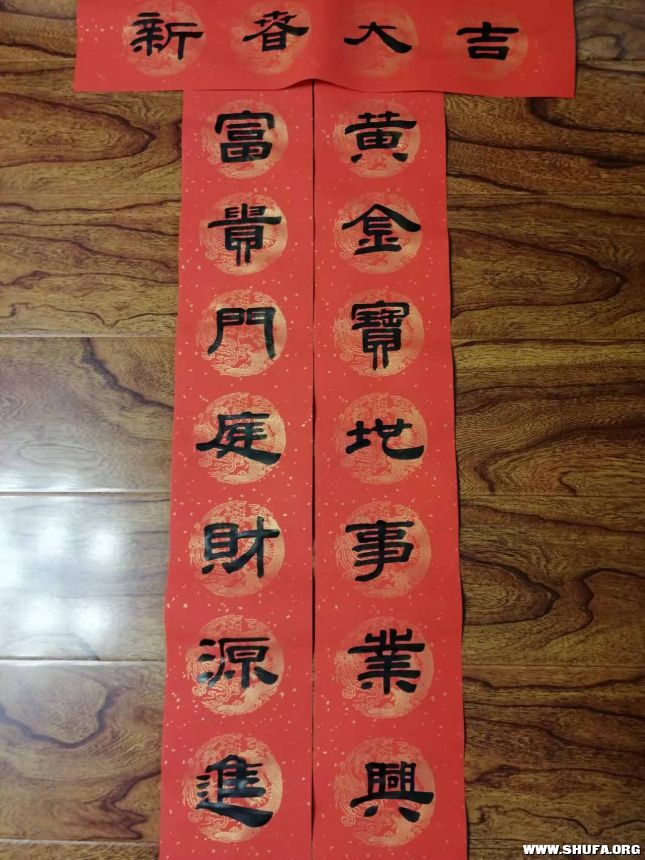 新春大吉
黄金寶地事業興
富貴門庭財源進
WWW.SHUFA.ORG